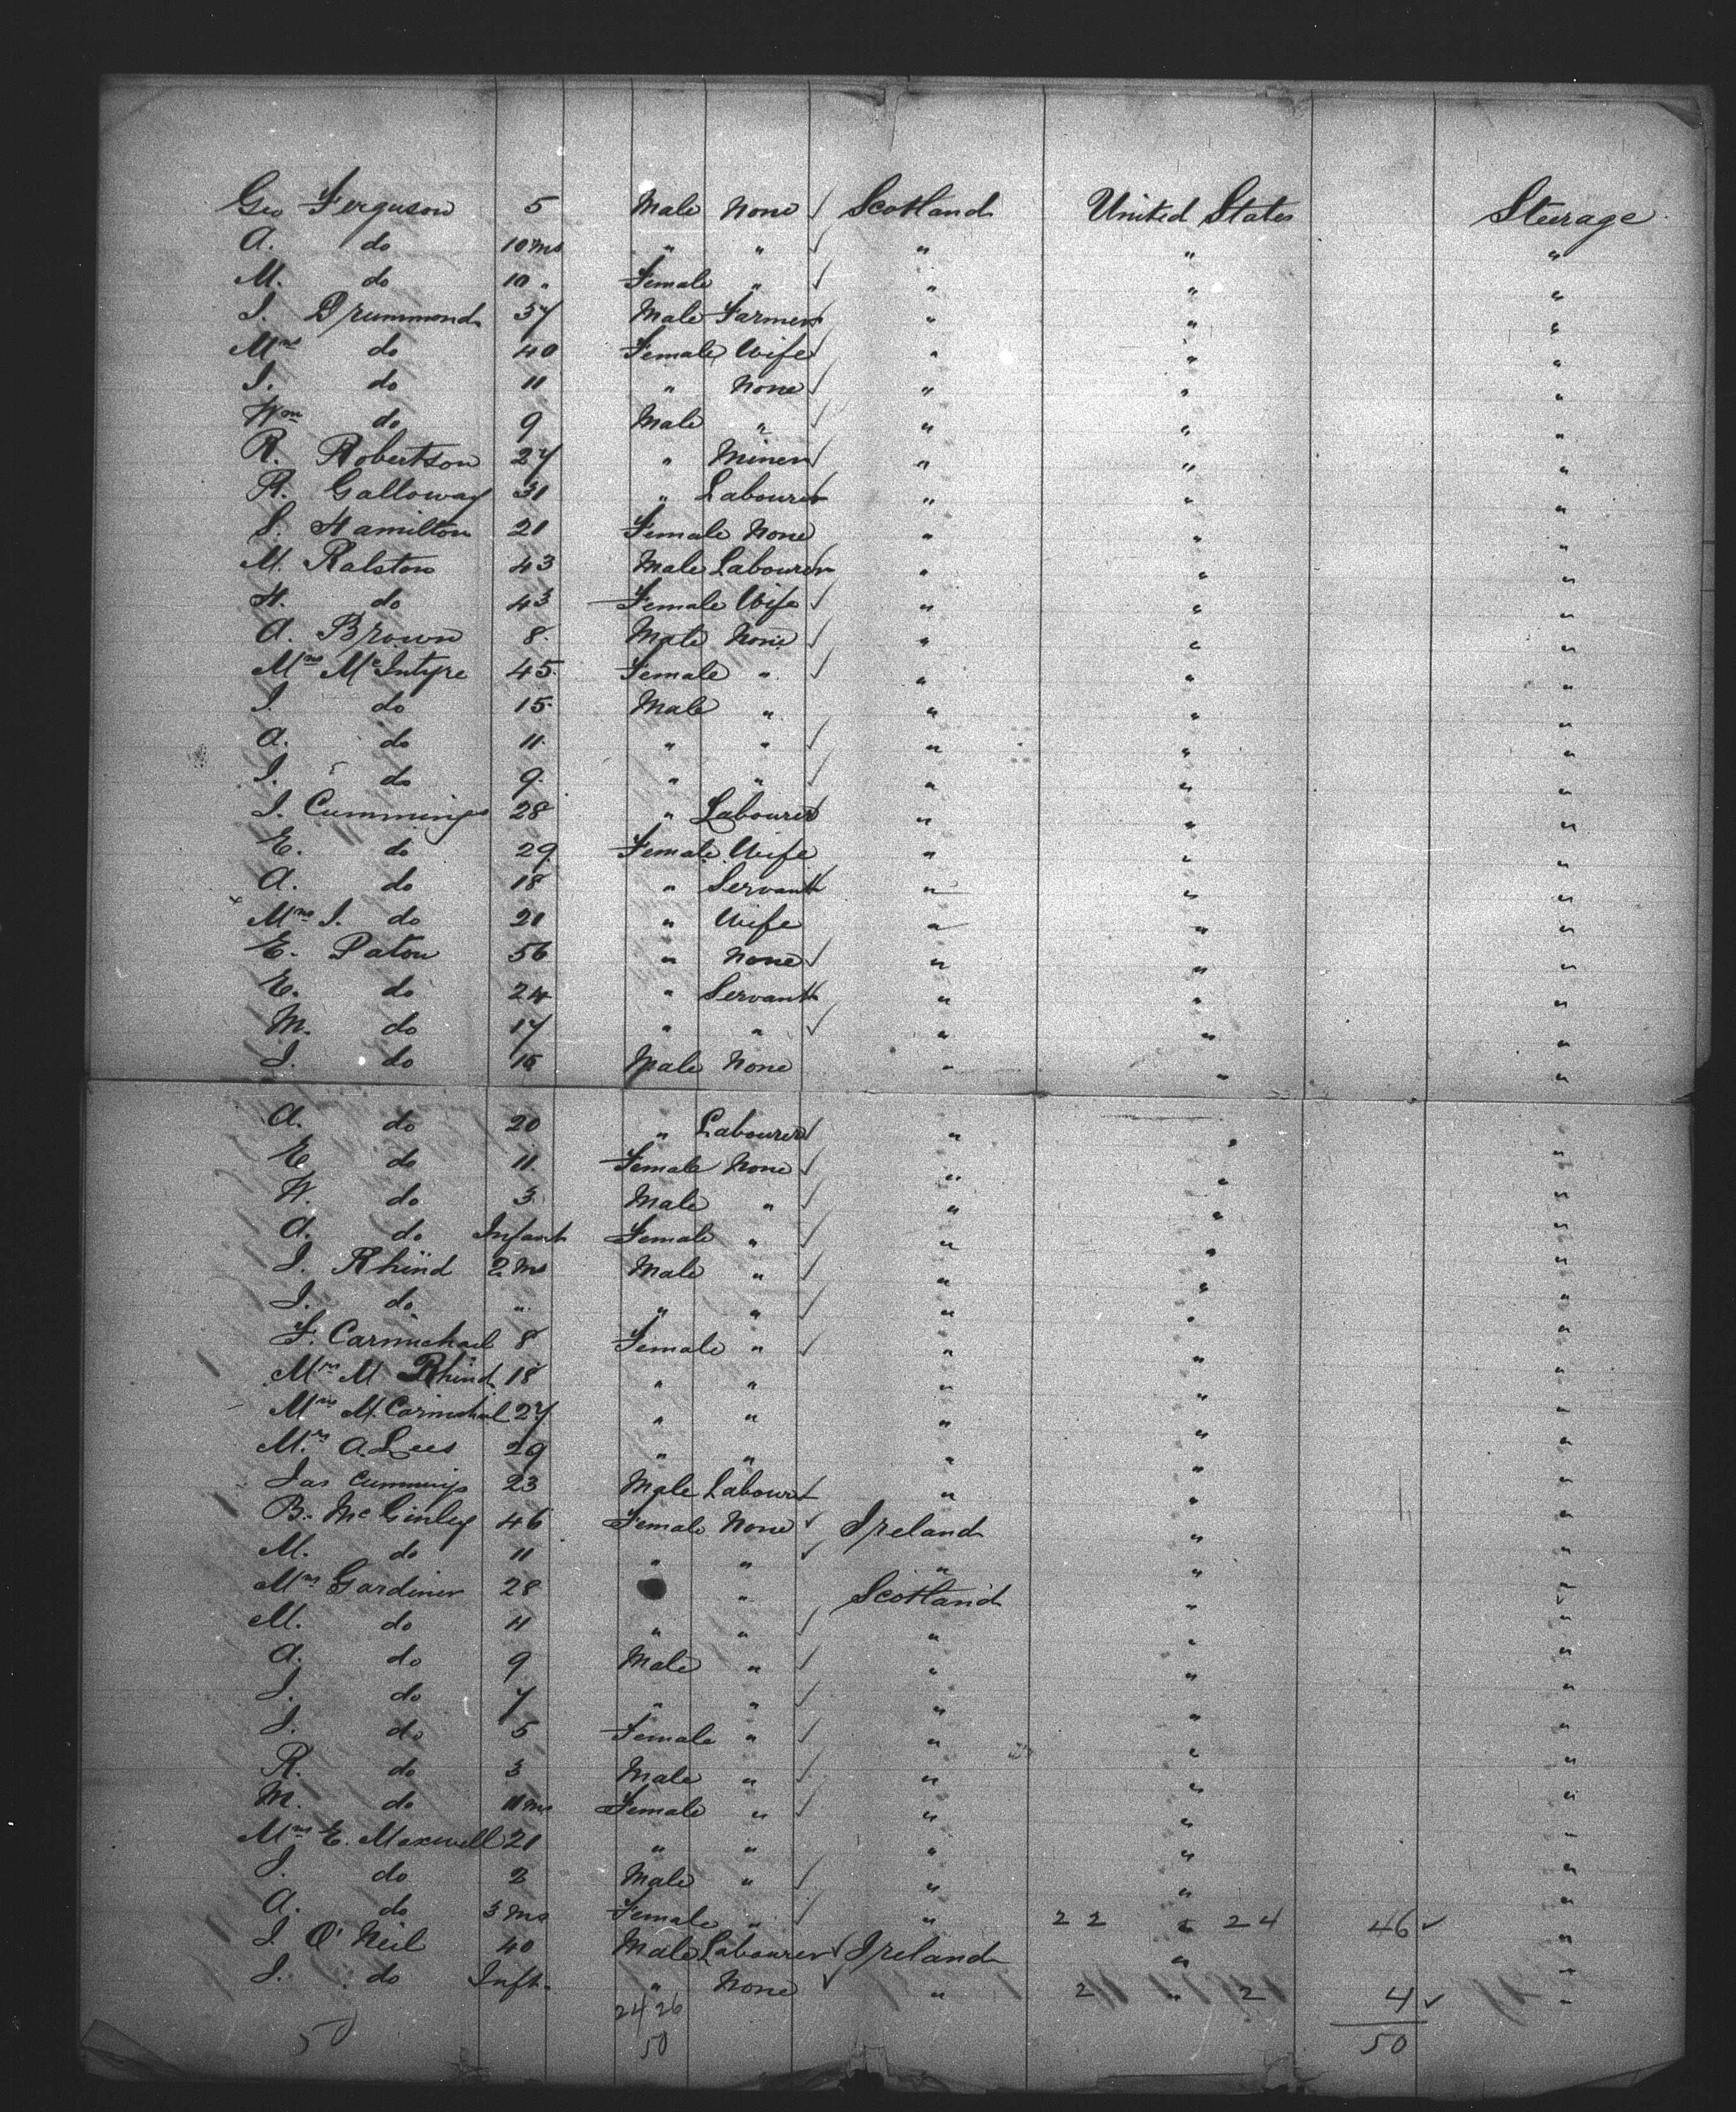 Geo Ferguson 5 Male None ✓ Scotland United States Steerage
A. do 10 ms " " ✓ " " "
M. do 10 " Female " ✓ " " "
J. Drummond 37 Male Farmer ✓ " " "
Mrs do 40 Female Wife ✓ " " "
J. do 11 " None ✓ " " "
Wm do 9 Male " ✓ " " "
R. Robertson 27 " Miner ✓ " " "
R. Galloway 31 " Labourer ✓ " " "
S. Hamilton 21 Female None " " "
M. Ralston 43 Male Labourer ✓ " " "
H. do 43 Female Wife ✓ " " "
A. Brown 8 Male None ✓ " " "
Mrs McIntyre 45 Female " ✓ " " "
J. do 15 Male " " " "
A. do 11 " " ✓ " " "
J. do 9 " " ✓ " " "
J. Cummings 28 " Labourer ✓ " " "
E. do 29 Female Wife " " "
A. do 18 " Servant ✓ " " "
Mrs J. do 21 " Wife " " "
E. Paton 56 " None ✓ " " "
E. do 24 " Servant ✓ " " "
M. do 17 " " ✓ " " "
J. do 15 Male None " " "
A. do 20 " Labourer ✓ " " "
E do 11 Female None ✓ " " "
W. do 3 Male " ✓ " " "
A. do Infant Female " ✓ " " "
J. Rhind 2 ms Male " ✓ " " "
J. do " " " ✓ " " "
F. Carmichael 8 Female " ✓ " " "
Mrs M Rhind 18 " " " " "
Mrs M. Carmichael 27 " " " " "
Mrs A. Lees 29 " " " " "
Jas Cummings 23 Male Labourer ✓ " " "
B. McGinley 46 Female None ✓ Ireland " "
M. do 11 " " ✓ " " "
Mrs Gardiner 28 " Scotland " "
M. do 11 " " ✓ " " "
A. do 9 Male " ✓ " " "
J. do 7 " " ✓ " " "
J. do 5 Female " ✓ " " "
R. do 3 Male " ✓ " " "
M. do 11 ms Female " ✓ " " "
Mrs E. Maxwell 21 " " " " "
J. do 2 Male " ✓ " " "
A. do 3 ms Female " ✓ " 22 " 24 46 ✓ "
J O'Neil 40 Male Labourer ✓ Ireland " "
J. do Inft. " None ✓ " 2 " 2 4 ✓ "
24/26
50 50 50